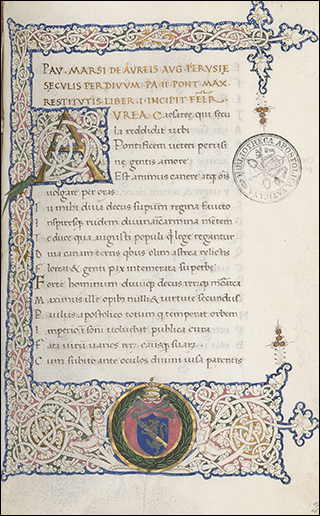 PAV. MARSI DE AVREIS AVG. PERVSIE
SECVLIS PER DIVVM. PA. II PONT. MAX.
RESTITVTIS LIBER. I INCIPIT FELR̃
AVREA Caesareę qui secu
la reddidit urbi
Pontificem ueteri perusi
ne gentis amore
Est animus canere atq;
uulgare per oras
Tu mihi diua decus superum regina faueto
Inspiresq; rudem diuina carmina mentem
Et duce qua augusti populi q lege regantur
Dum canam terris quibus olim astrea relictis
Floreat & genti pax intemerata superbę
Forte hominum diuumq; decus rerumq;
Maximus ille opibus nulliq; uirtute secundus
Paulus apostolico totum q temperat orbem
Imperio soni uoluebat publica cura
Fata uirum uarios rerum casusq; futuros
Cum subito ante oculos diuini uisa parentis
BIBLIOTHECA APOSTOLICA VATICANA
2